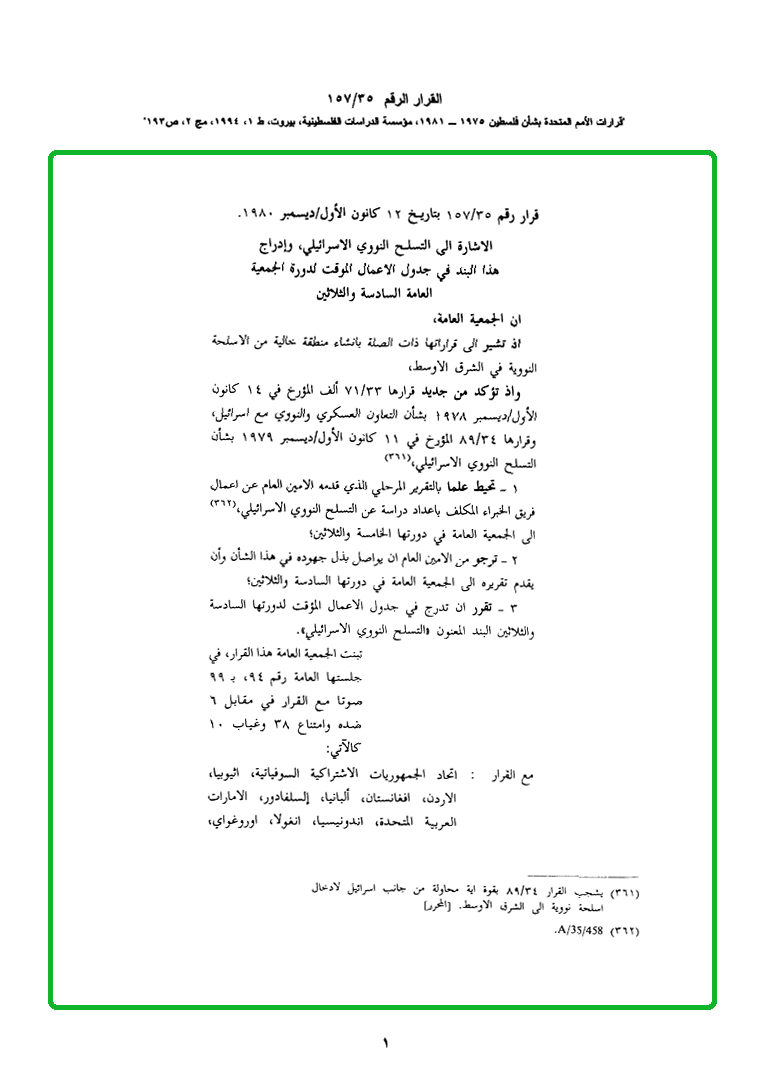 القرار الرقم ١٥٧/٣٥
"قرارات الأمم المتحدة بشأن فلسطين ١٩٧٥ – ١٩٨١، مؤسسة الدراسات الفلسطينية، بيروت، ط ١، ١٩٩٤، مج ٢، ص١٩٣"
قرار رقم ١٥٧/٣٥ بتاريخ ١٢ كانون الأول/ديسمبر ١٩٨٠.
الاشارة الى التسلح النووي الاسرائيلي، وإدراج
هذا البند في جدول الاعمال الموقت لدورة الجمعية
العامة السادسة والثلاثين
ان الجمعية العامة،
اذ تشير الى قراراتها ذات الصلة بانشاء منطقة خالية من الاسلحة
النووية في الشرق الاوسط،
واذ تؤكد من جديد قرارها ٧١/٣٣ ألف المؤرخ في ١٤ كانون
الأول/ديسمبر ١٩٧٨ بشأن التعاون العسكري والنووي مع اسرائيل،
وقرارها ٨٩/٣٤ المؤرخ في ١١ كانون الأول/ديسمبر ١٩٧٩ بشأن
التسلح النووي الاسرائيلي،(٣٦١)
١ – تحيط علما بالتقرير المرحلي الذي قدمه الامين العام عن اعمال
فريق الخبراء المكلف باعداد دراسة عن التسلح النووي الاسرائيلي،(٣٦٢)
الى الجمعية العامة في دورتها الخامسة والثلاثين؛
٢ – ترجو من الامين العام ان يواصل بذل جهوده في هذا الشأن وأن
يقدم تقريره الى الجمعية العامة في دورتها السادسة والثلاثين؛
٣ – تقرر ان تدرج في جدول الاعمال المؤقت لدورتها السادسة
والثلاثين البند المعنون «التسلح النووي الاسرائيلي».
تبنت الجمعية العامة هذا القرار، في
جلستها العامة رقم ٩٤، بـ ٩٩
صوتا مع القرار في مقابل ٦
ضده وامتناع ٣٨ وغياب ١٠
كالآتي:
مع القرار : اتحاد الجمهوريات الاشتراكية السوفياتية، اثيوبيا،
الاردن، افغانستان، ألبانيا، إلسلفادور، الامارات
العربية المتحدة، اندونيسيا، انغولا، اوروغواي،
(٣٦١) يشجب القرار ٨٩/٣٤ بقوة اية محاولة من جانب اسرائيل لادخال
اسلحة نووية الى الشرق الاوسط. [المحرر]
(٣٦٢) A/35/458.
١